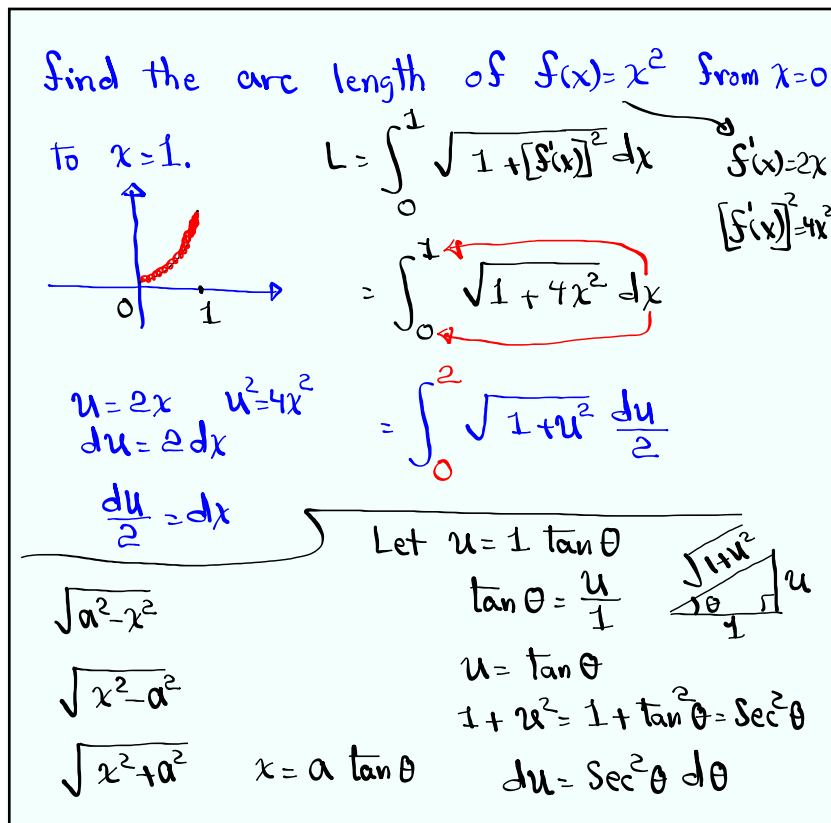 find the arc length of f(x)=x² from x=0
to x=1.
L = ∫₀¹ √(1+[f'(x)]²) dx
f'(x)=2x
[f'(x)]²=4x²
0 1
= ∫₀¹ √(1+4x²) dx
u=2x u²=4x²
du=2dx
du/2 = dx
= ∫₀² √(1+u²) du/2
Let u = 1 tanθ
tanθ = u/1
√(1+u²) u
θ
1
u = tanθ
1+u² = 1+tan²θ = Sec²θ
du = Sec²θ dθ
√(a²-x²)
√(x²-a²)
√(x²+a²) x = a tanθ